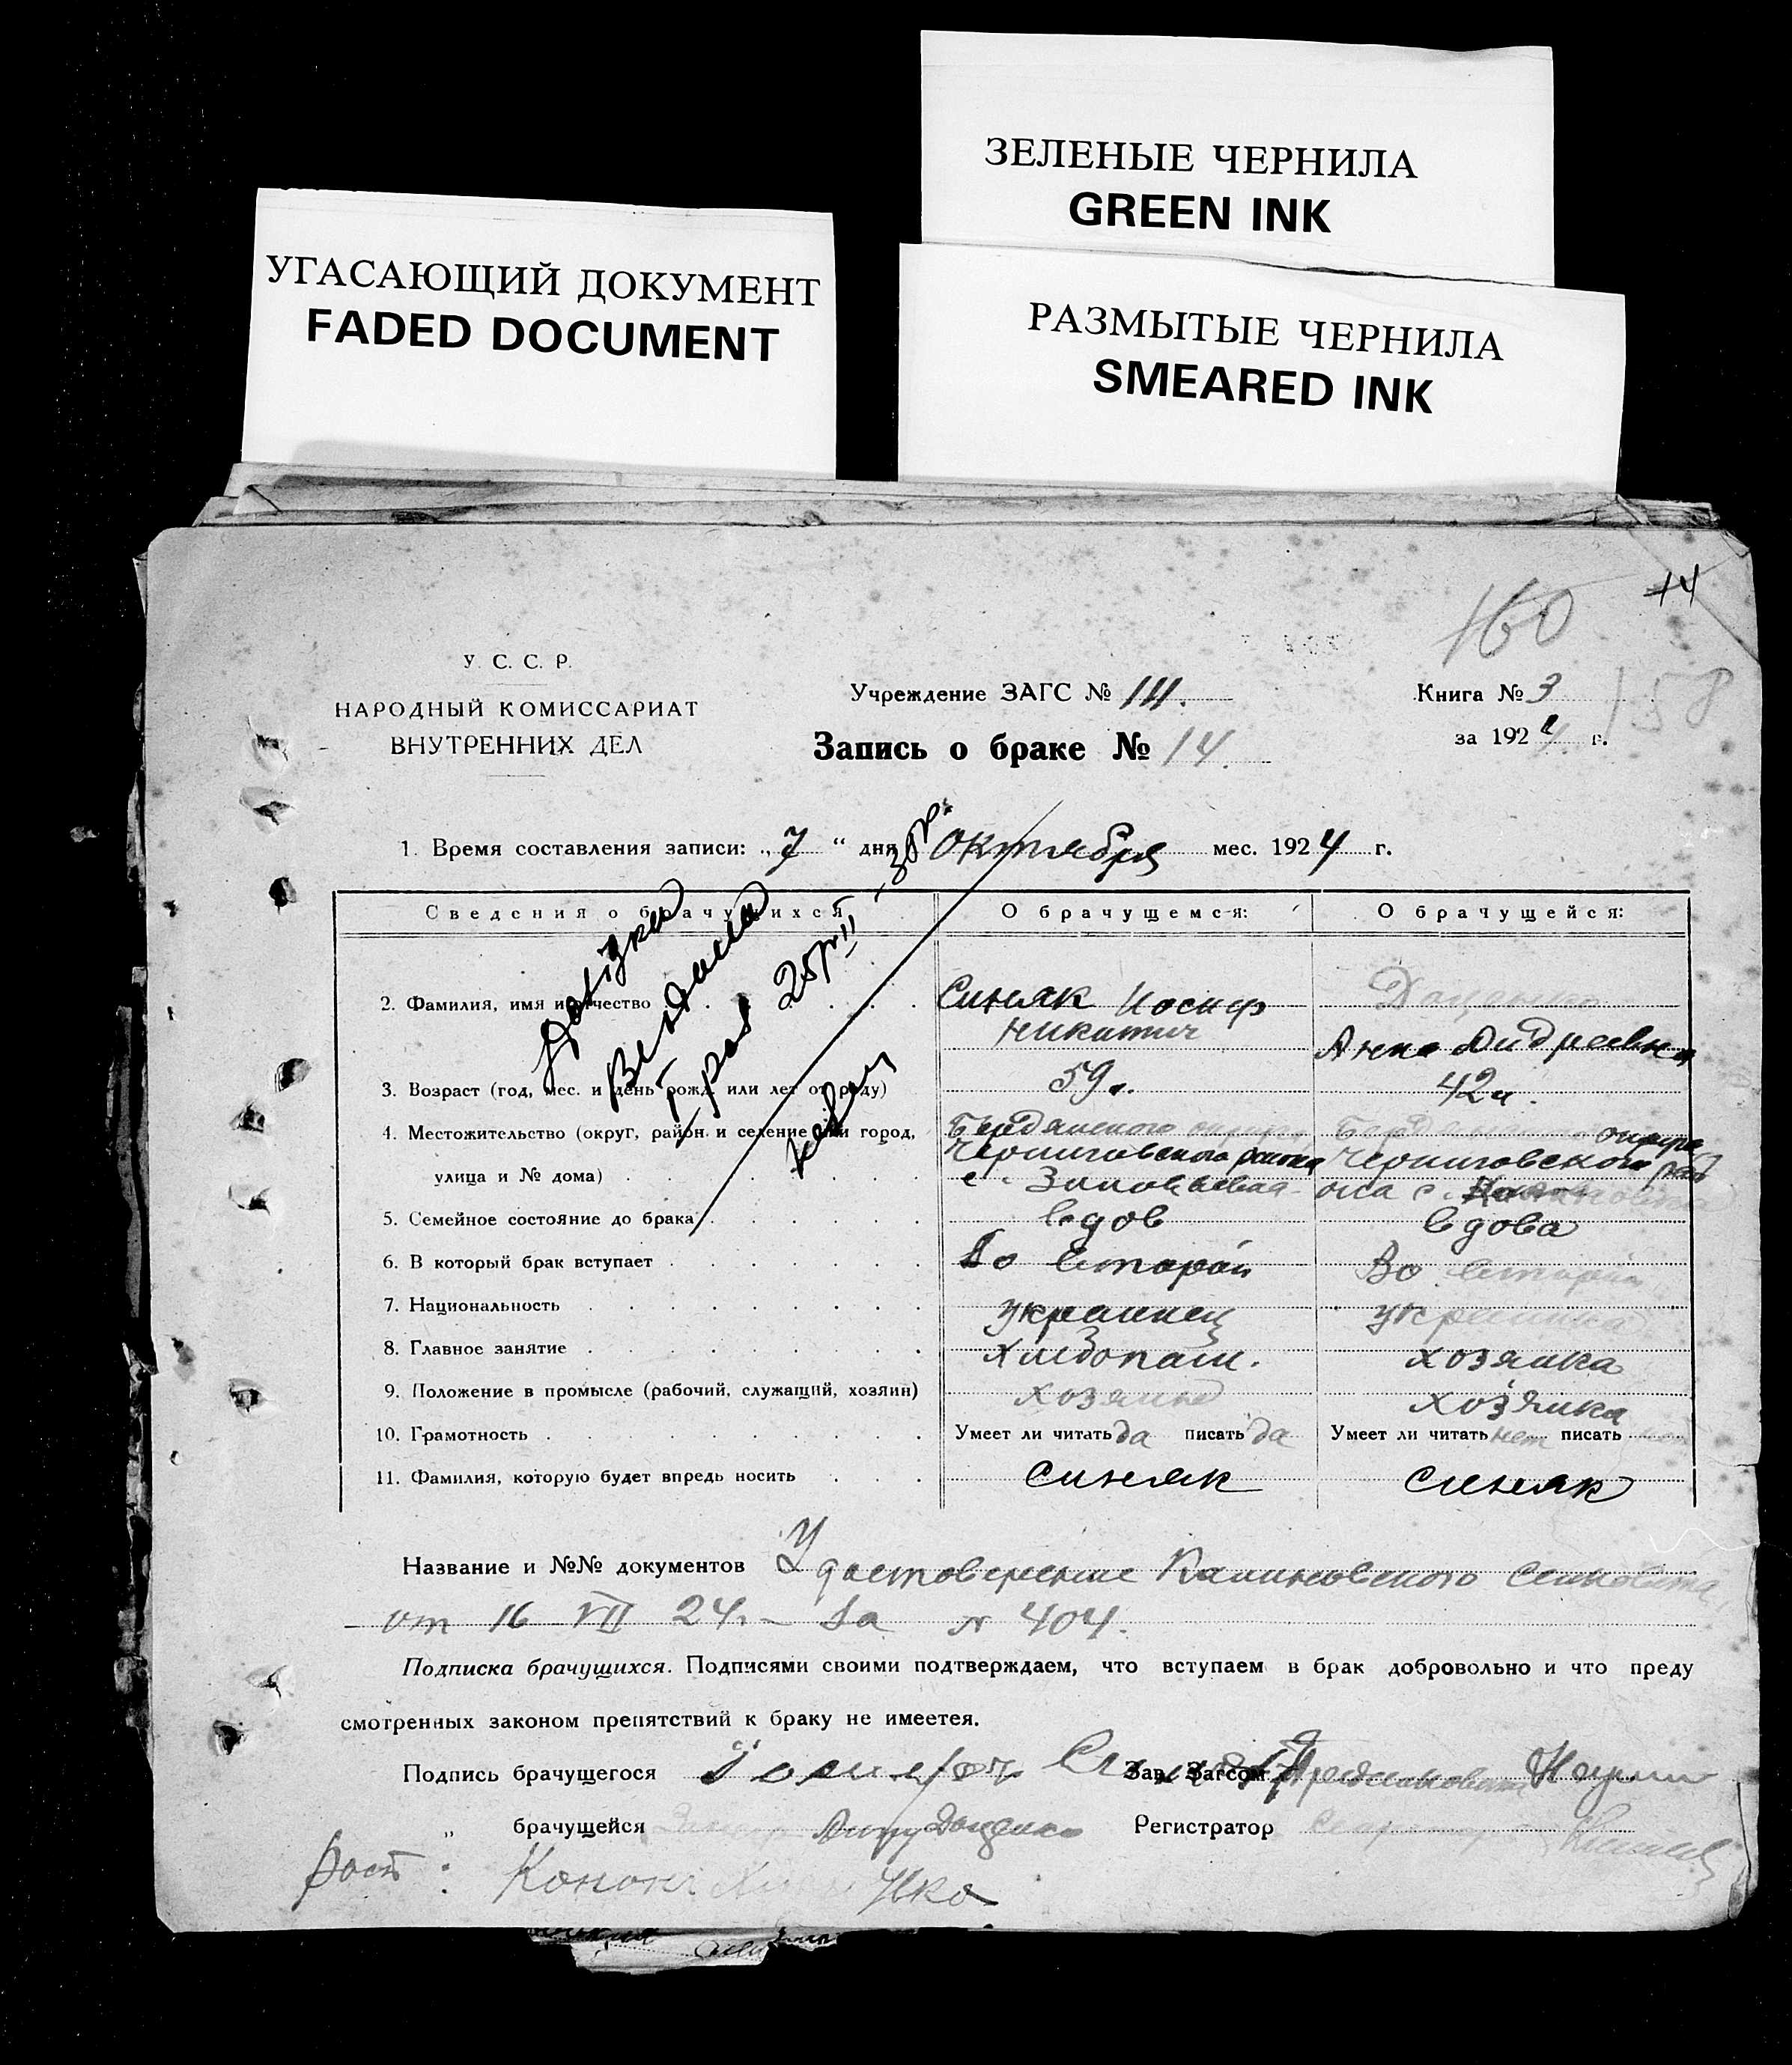 ЗЕЛЕНЫЕ ЧЕРНИЛА
GREEN INK
УГАСАЮЩИЙ ДОКУМЕНТ
FADED DOCUMENT
РАЗМЫТЫЕ ЧЕРНИЛА
SMEARED INK
14
160
158
У. С. С. Р.
НАРОДНЫЙ КОМИССАРИАТ
ВНУТРЕННИХ ДЕЛ
Учреждение ЗАГС № 111.
Книга № 3
Запись о браке № 14.
за 1924 г.
1. Время составления записи: „7" дня октября мес. 1924 г.
Сведения о брачущихся
О брачущемся:
О брачущейся:
2. Фамилия, имя и отчество
Синяк Иосиф
Никитич
Доценко
Анна Андреевна
3. Возраст (год, мес. и день рожд. или лет от роду)
59 л.
42 л.
4. Местожительство (округ, район и селение или город,
улица и № дома)
Бердянского округа
Черниговского района
с.
Бердянского округа
Черниговского рай
она с.
5. Семейное состояние до брака
вдов
вдова
6. В который брак вступает
Во второй
Во второй
7. Национальность
украинец
украинка
8. Главное занятие
хлебопаш.
хозяйка
9. Положение в промысле (рабочий, служащий, хозяин)
хозяин
хозяйка
10. Грамотность
Умеет ли читать да писать да
Умеет ли читать нет писать нет
11. Фамилия, которую будет впредь носить
Синяк
Синяк
Название и №№ документов Удостоверение Калиновского сельсовета
от 16 VII 24 г. за № 404.
Подписка брачущихся. Подписями своими подтверждаем, что вступаем в брак добровольно и что преду
смотренных законом препятствий к браку не имеетея.
Подпись брачущегося
Зав. Загсом
„ брачущейся Доценко
Регистратор